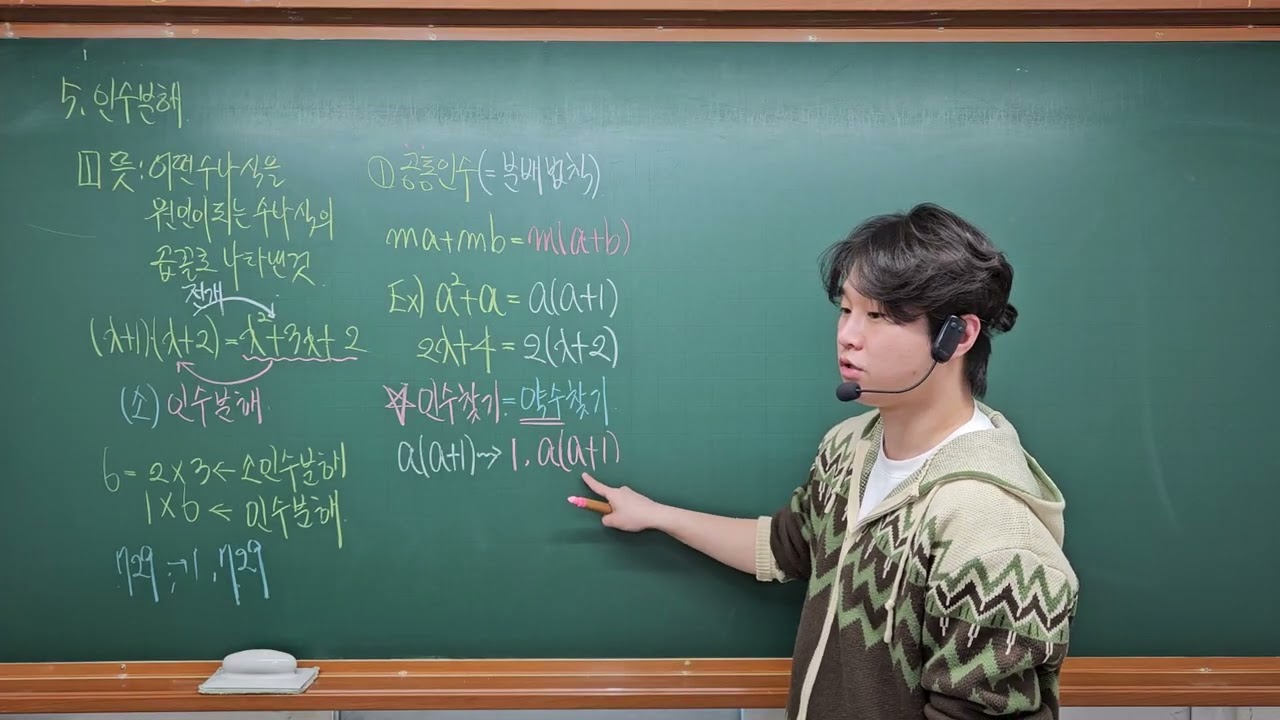 5. 인수분해
1 뜻: 어떤 수나 식을
원인이 되는 수나 식의
곱꼴로 나타낸 것
전개
(x+1)·(x+2) = x²+3x+2
(소) 인수분해
6 = 2×3 ← 소인수분해
1×6 ← 인수분해
729 → 1, 729
① 공통인수(=분배법칙)
ma+mb = m(a+b)
Ex) a²+a = a(a+1)
2x+4 = 2(x+2)
☆ 인수찾기 = 약수찾기
a(a+1) → 1, a(a+1)